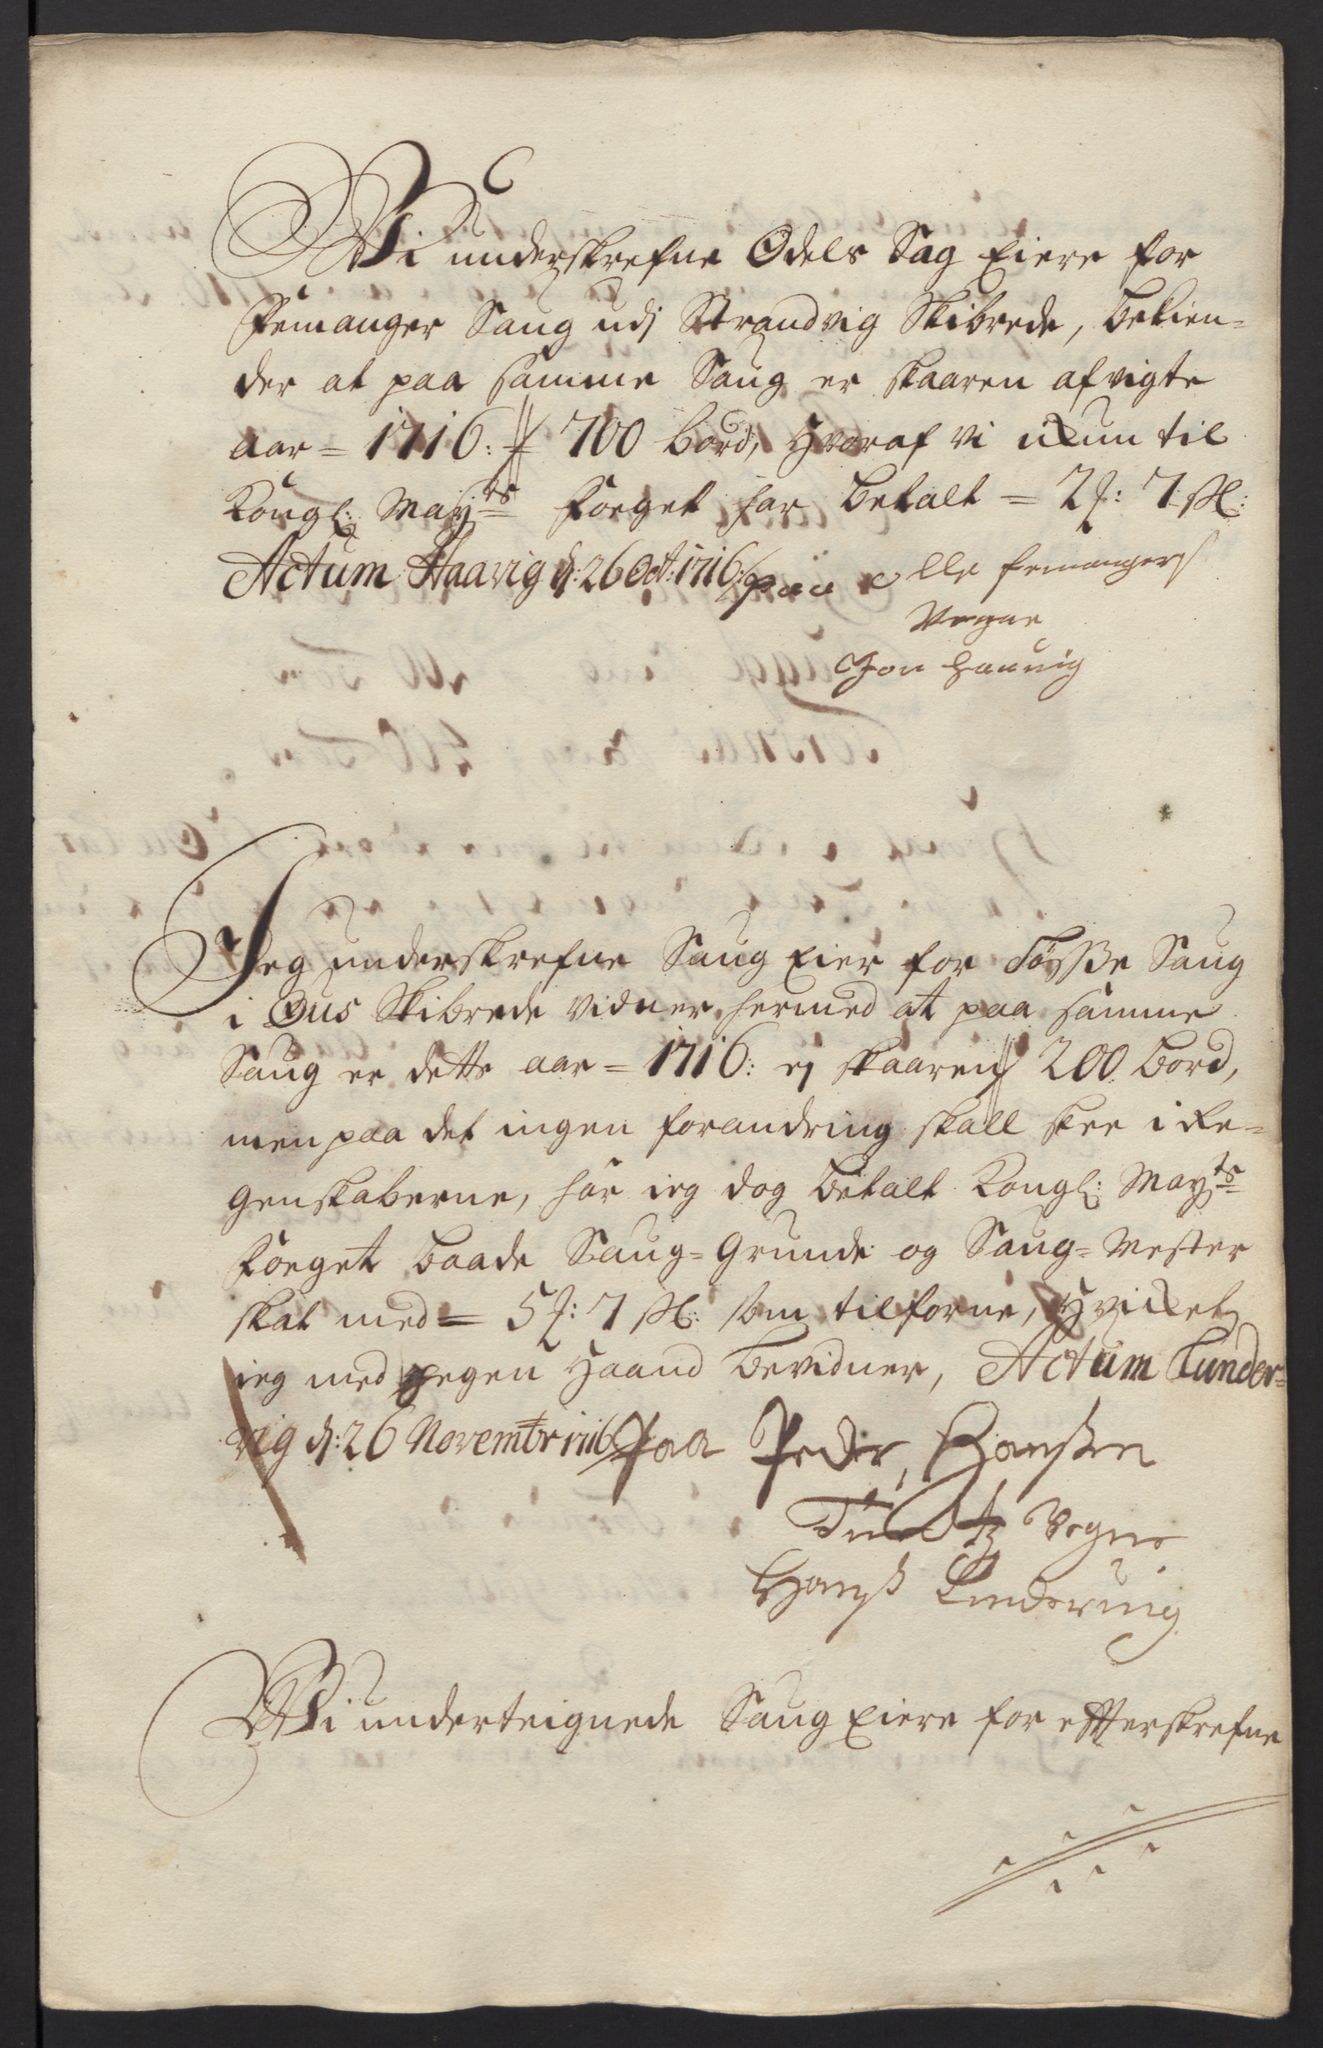 Vi underskrefne Odels Sag Eiere for
Femanger Saug udj Strandvig Skibrede, bekien-
der at paa samme Saug er skaaren afvigte
aar = 1716: # 700 bord, hvoraf vi til
Kongl: Mayts foeget har betalt = 2 : 7
Actum Haavig d: 26 Oct: 1716: paa alle femangers
Vegne
Jon Haavig
Jeg underskrefne Saug Eier for Tøsse Saug
i Ous Skibrede vidner hermed at paa samme
Saug er dette aar = 1716: ej skaaren 200 bord,
men paa det ingen forandring skall skee i Re-
genskaberne, har ieg dog betalt Kongl: Mayts
foeget baade Saug-Grunde og Saug-Mester
skat med = 5 : 7 som tilforne, hvilket
ieg med egen Haand bevidner, Actum Lunder-
vig d: 26 Novembr 1716 Paa Peder Hanssen
Vegne
Hanß Lundervig
Vi underteignede Saug Eiere for efterskrefne